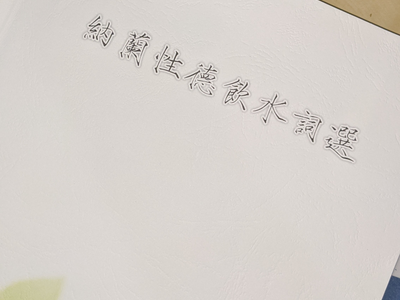 納蘭性德飲水詞選